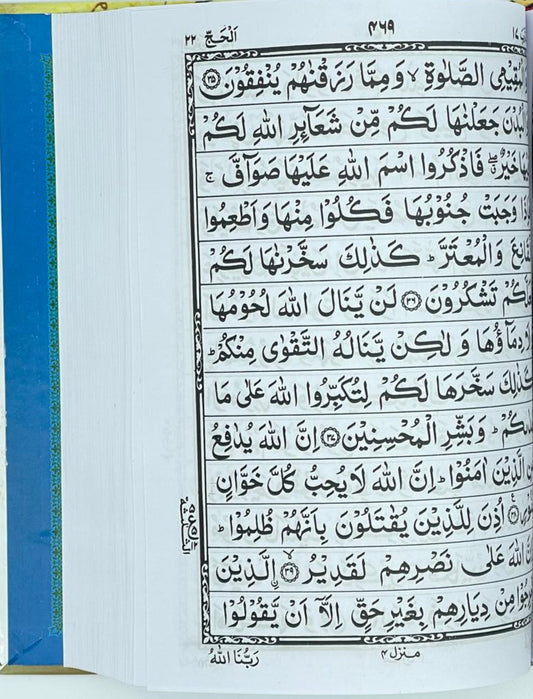 اَلْحَجّ ٢٢
٤٦٩
١٧
الصَّلٰوةِ ۙ وَمِمَّا رَزَقْنٰهُمْ يُنْفِقُوْنَ ﴿٣٥﴾
جَعَلْنٰهَا لَكُمْ مِّنْ شَعَآئِرِ اللّٰهِ لَكُمْ
خَيْرٌ ۖ فَاذْكُرُوا اسْمَ اللّٰهِ عَلَيْهَا صَوَآفَّ ۚ
وَجَبَتْ جُنُوْبُهَا فَكُلُوْا مِنْهَا وَاَطْعِمُوا
وَالْمُعْتَرَّ ؕ كَذٰلِكَ سَخَّرْنٰهَا لَكُمْ
تَشْكُرُوْنَ ﴿٣٦﴾ لَنْ يَّنَالَ اللّٰهَ لُحُوْمُهَا
دِمَآؤُهَا وَ لٰكِنْ يَّنَالُهُ التَّقْوٰى مِنْكُمْ ؕ
سَخَّرَهَا لَكُمْ لِتُكَبِّرُوا اللّٰهَ عَلٰى مَا
وَبَشِّرِ الْمُحْسِنِيْنَ ﴿٣٧﴾ اِنَّ اللّٰهَ يُدٰفِعُ
الَّذِيْنَ اٰمَنُوْا ؕ اِنَّ اللّٰهَ لَا يُحِبُّ كُلَّ خَوَّانٍ
﴿٣٨﴾ اُذِنَ لِلَّذِيْنَ يُقٰتَلُوْنَ بِاَنَّهُمْ ظُلِمُوْا ؕ
اللّٰهَ عَلٰى نَصْرِهِمْ لَقَدِيْرُ ﴿٣٩﴾ اِلَّذِيْنَ
مِنْ دِيَارِهِمْ بِغَيْرِ حَقٍّ اِلَّاۤ اَنْ يَّقُوْلُوْا
مَنْزِل ٤
رَبُّنَا اللّٰهُ